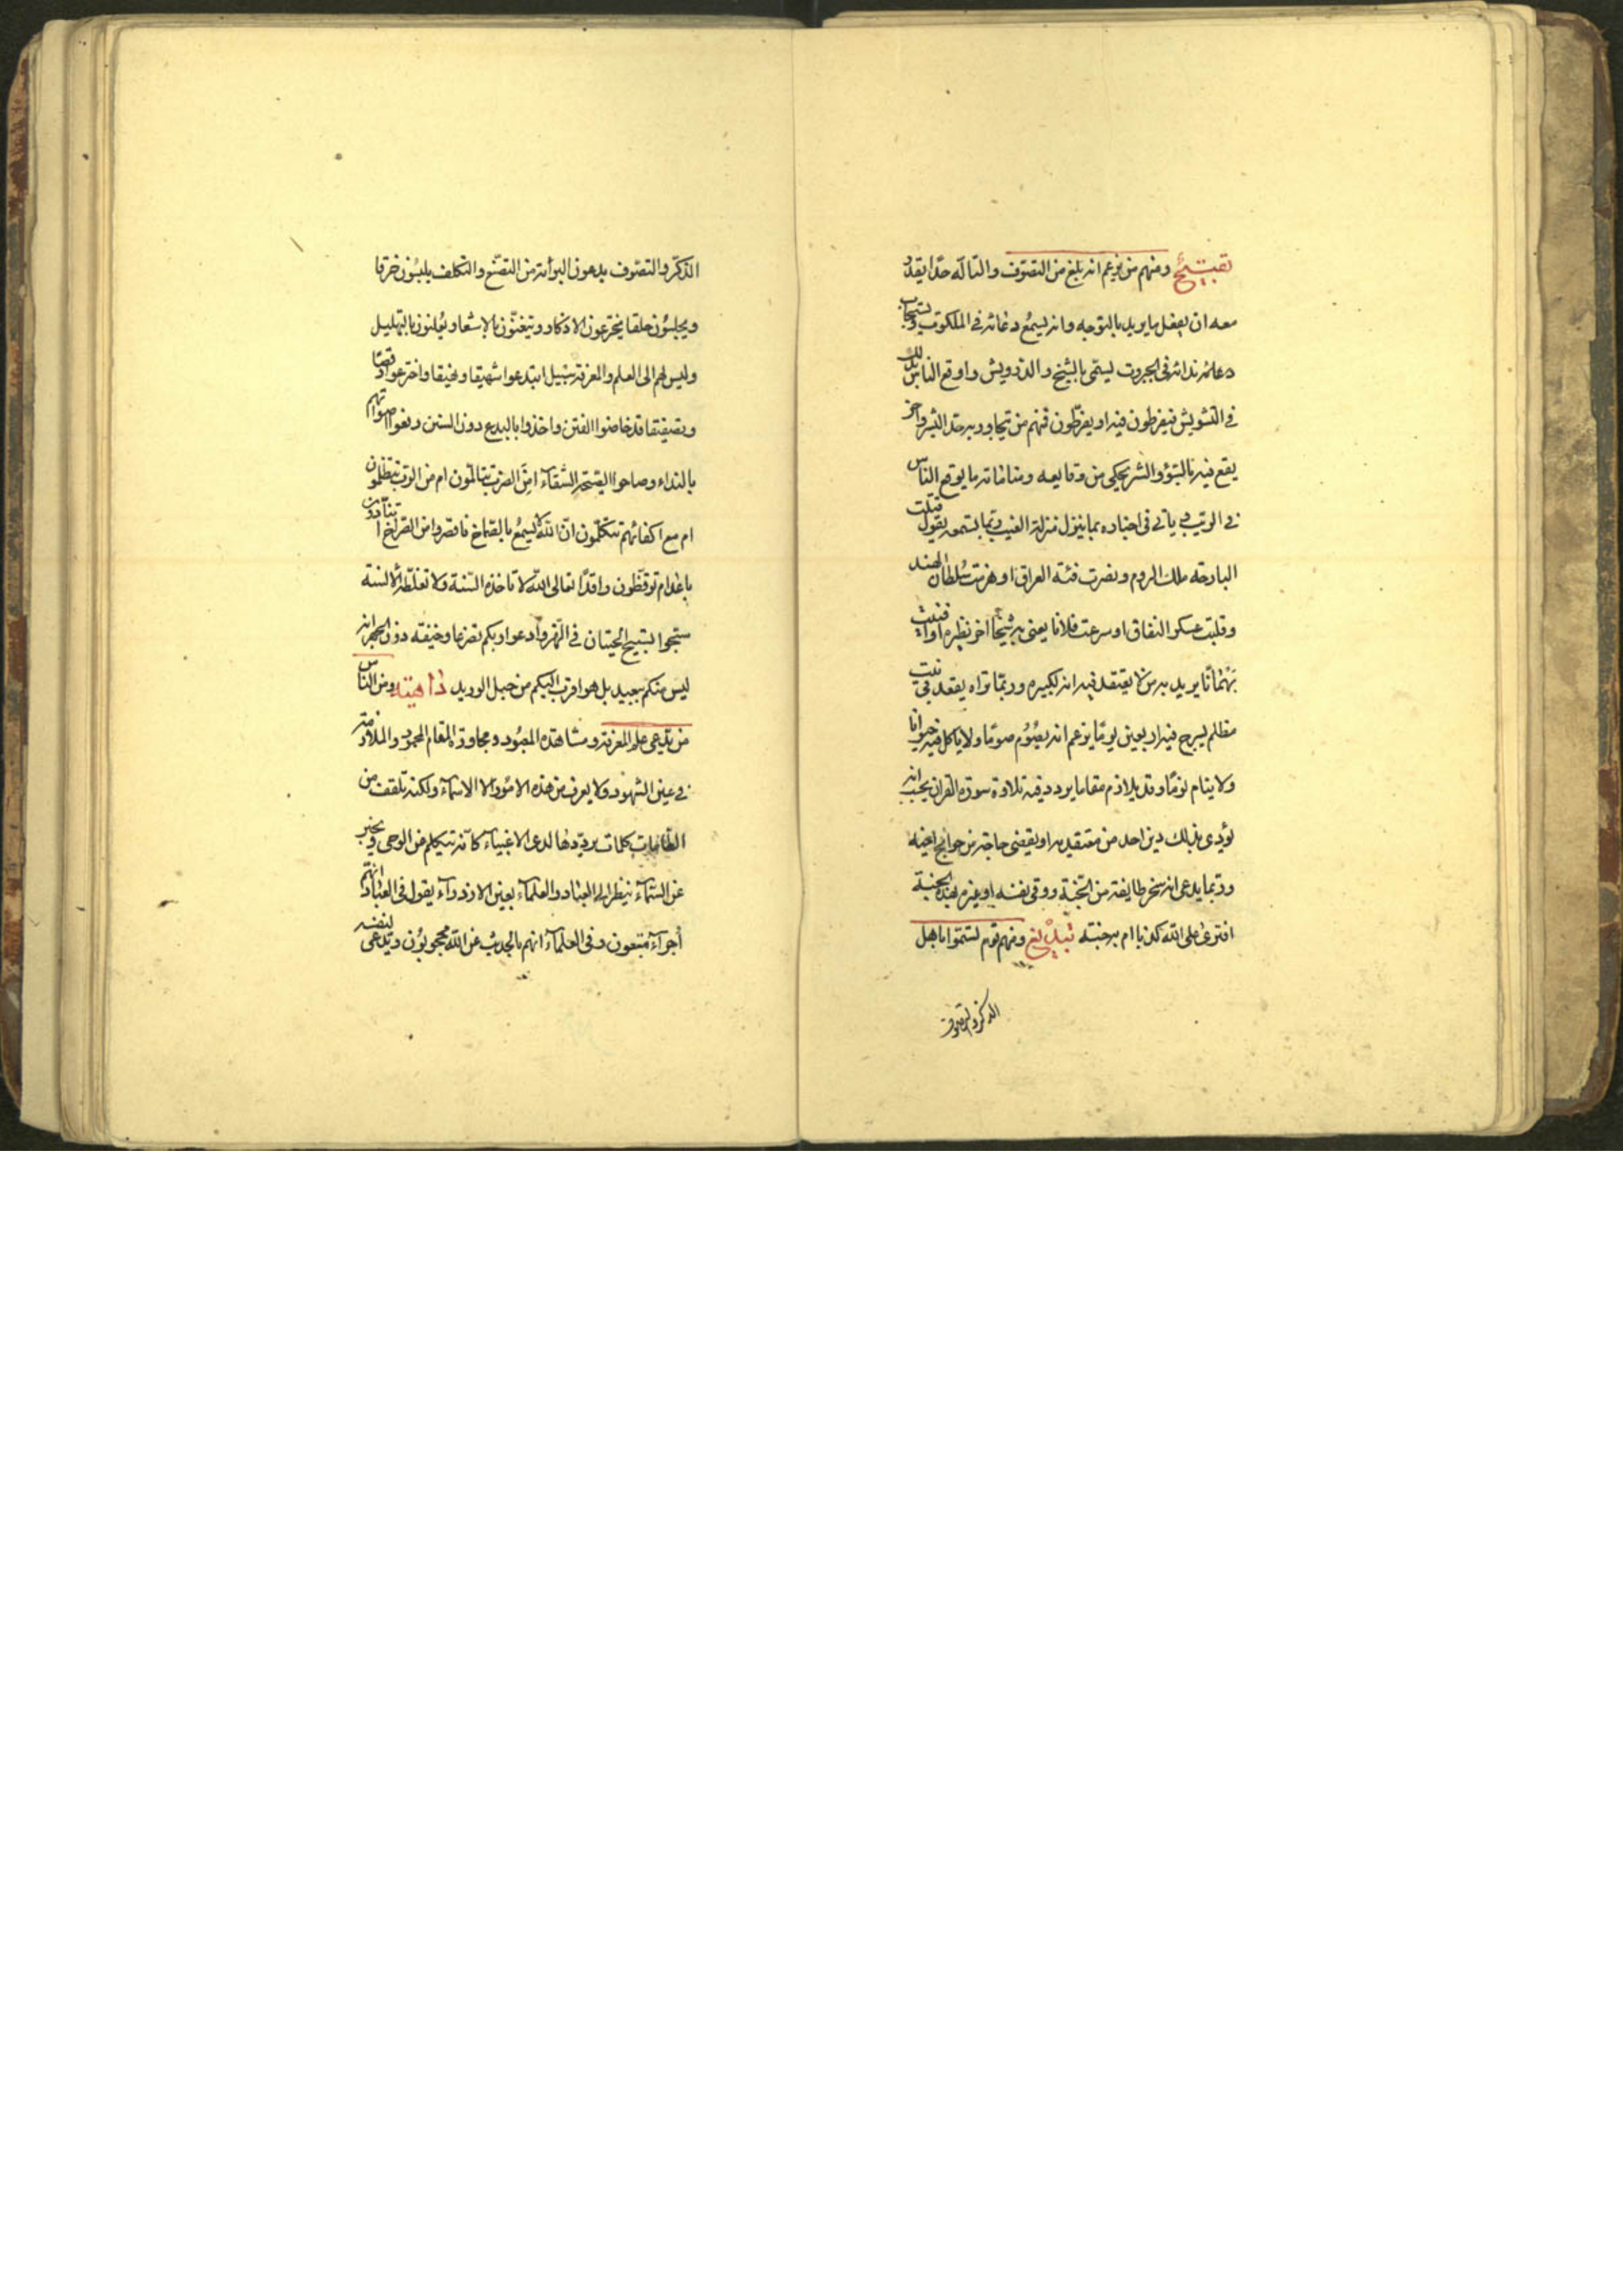 تقبیح ومنهم من زعم انه بلغ من التصوّف والتألّه حدّا يقدر
معه ان يفعل ما يريد بالتوجه وانه يسمع دعائه في الملكوت ويستجاب
ندائه في الجبروت يسمّى بالشيخ والدرويش واوقع الناس بذلك
في التشويش فيفرطون فيه او يفرّطون فمنهم من يتجاوز به حدّ البشر واخر
يقع فيه بالسوء والشر يحكي من وقايعه ومناماته ما يوقع الناس
في الريب ويأتي في اخباره بما ينزل منزلة الغيب وربما تسمعه يقول قتلت
البارحة ملك الروم ونصرت فئة العراق او هزمت سلطان الهند
وقلبت عسكر النفاق او صرعت فلانا يعني به شيخا اخر نظيره او افنيت
بهمانا يريد به من لا يعتقد فيه انه لكبيره وربّما تراه يقعد في بيت
مظلم يسرج فيه اربعين يوما يزعم انه يصوم صوما ولا يأكل فيه حيوانا
ولا ينام نوما وقد يلازم مقاما يردد فيه تلاوة سورة القران يحسب انه
يؤدي بذلك دين احد من معتقديه او يقضي حاجة من حوائج اخيه
وربما يدعي انه سخر طايفة من الجنّة ووقى نفسه او غيره بهذه الجنة
افترى على الله كذبا ام به جنة تبليغ ومنهم قوم تسمّوا باهل
الذكر والتصوف
الذكر والتصوف يدعون البرائة من التصنّع والتكلف يلبسون خرقا
ويجلسون حلقا يخترعون الاذكار ويتغنّون بالاشعار يعلنون بالتهليل
وليس لهم الى العلم والمعرفة سبيل ابتدعوا شهيقا ونهيقا واخترعوا رقصا
وتصفيقا قد خاضوا الفتن واخذوا بالبدع دون السنن رفعوا اصواتهم
بالنداء وصاحوا الصيحة الشقاء امن الضرب يتألمون ام من الرب يتظلمون
ام مع اكفائهم يتكلمون ان الله لا يسمع بالصماخ فاقصروا من الصراخ اتنادون
باعدا ام توقظون راقدا تعالى الله لا تأخذه السنة ولا تغلطه الالسنة
سبحوا تسبيح الحيتان في النهر وادعوا ربكم تضرعا وخيفة دون الجهر انه
ليس منكم ببعيد بل هو اقرب اليكم من حبل الوريد داهية ومن الناس
من يدعي علم المعرفة ومشاهدة المعبود ومجاورة المقام المحمود والملازمة
في عين الشهود ولا يعرف من هذه الامور الا الاسماء ولكنه تلقف من
الطامات كلمات يرددها لدى الاغبياء كأنه يتكلم من الوحي ويخبر
عن السماء ينظر الى العباد والعلماء بعين الازدراء يقول في العباد انهم
أجراء متعبون وفي العلماء انهم بالحديث عن الله محجوبون ويدعي لنفسه